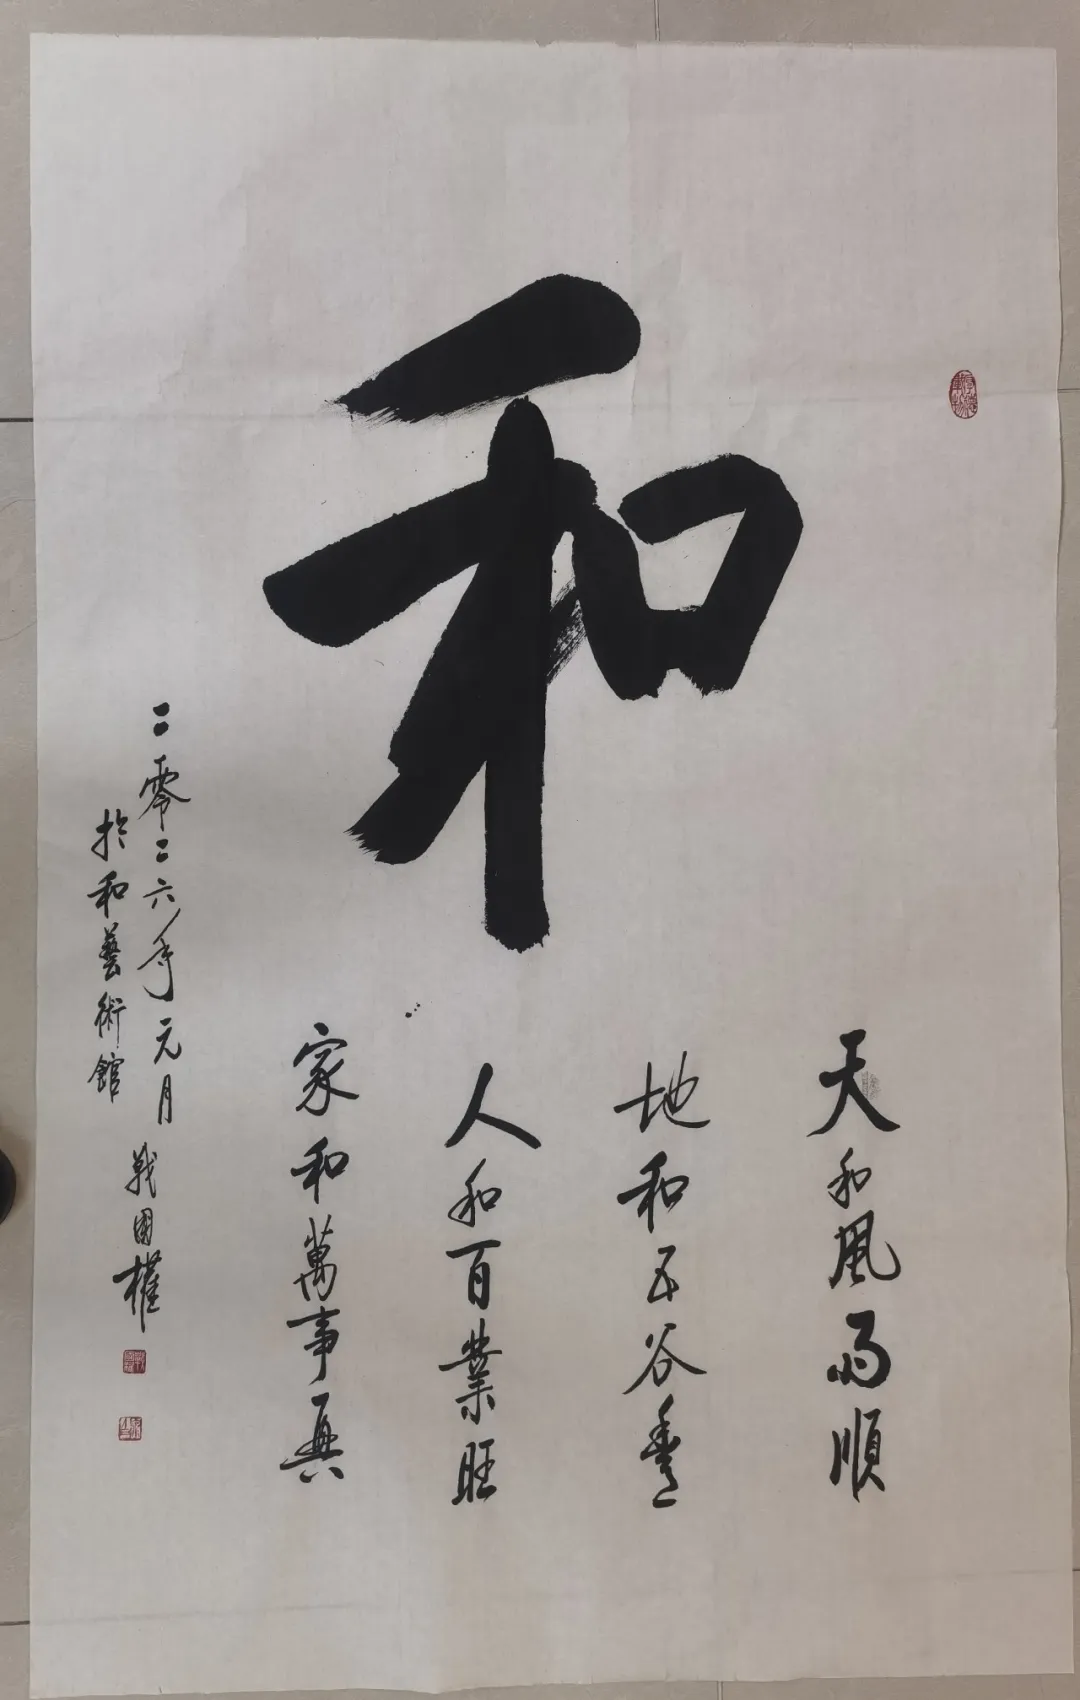 和
天和風雨順
地和五谷豐
人和百業旺
家和萬事興
二零二六年元月
於和藝術館
戰國權